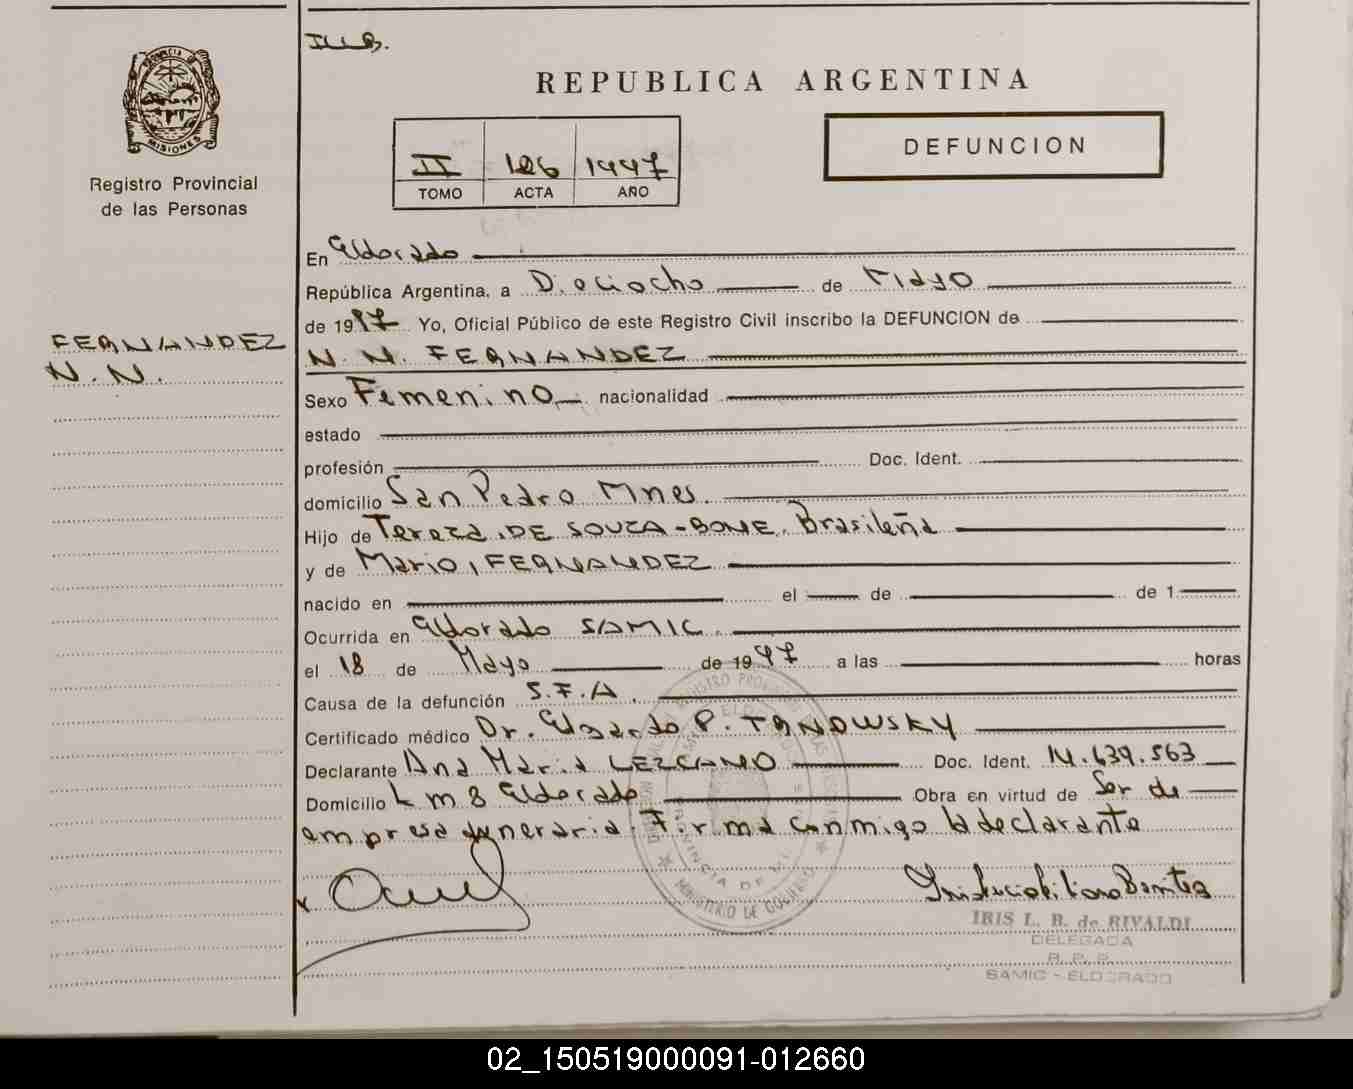 I.L.B.
REPUBLICA ARGENTINA
PROVINCIA D
MISIONES
Registro Provincial
de las Personas
II 126 1997
TOMO ACTA AÑO
DEFUNCION
FERNANDEZ
N.N.
En Eldorado
República Argentina, a Dieciocho de Mayo
de 1997 Yo, Oficial Público de este Registro Civil inscribo la DEFUNCION de
N. N. FERNANDEZ
Sexo Femenino nacionalidad
estado
profesión Doc. Ident.
domicilio San Pedro Mnes.
Hijo de Tereza DE SOUZA-BONE, Brasileña
y de Mario, FERNANDEZ
nacido en el de de 1
Ocurrida en Eldorado SAMIC.
el 18 de Mayo de 1997 a las horas
Causa de la defunción S.F.A.
Certificado médico Dr. P.
Declarante Ana Maria LEZCANO Doc. Ident. 14.639.563
Domicilio Km 8 Eldorado Obra en virtud de Ser de
empresa funeraria. Firma conmigo la declarante
MINISTERIO DE GOBIERNO
IRIS L. B. de RIVALDI
DELEGADA
R. P. P.
SAMIC - ELDORADO
02_150519000091-012660